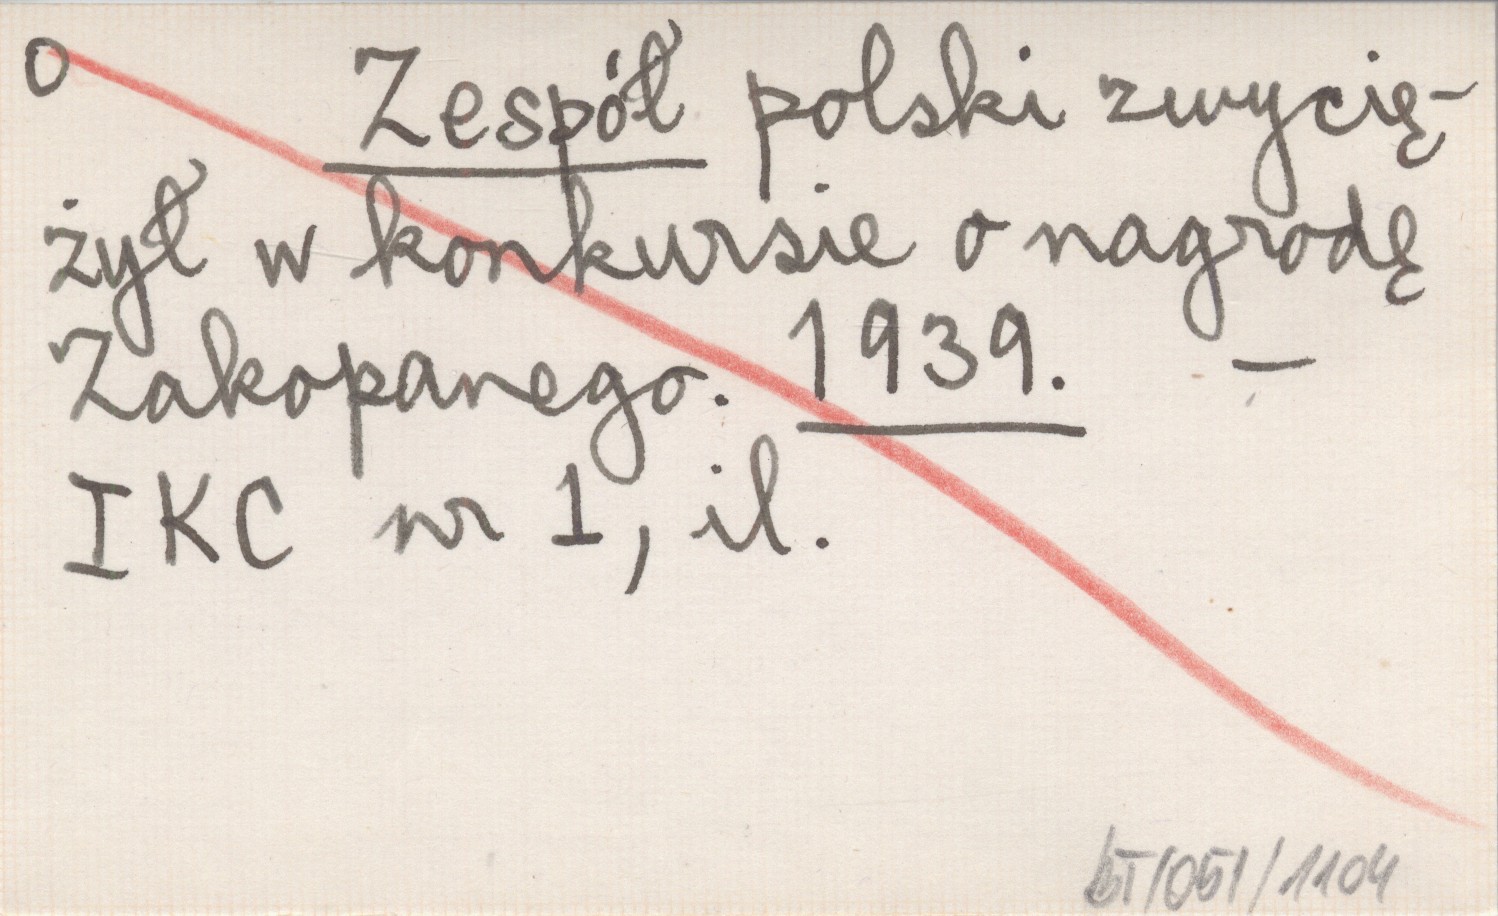 o Zespół polski zwycię-
żył w konkursie o nagrodę
Zakopanego. 1939. –
IKC nr 1, il.
/051/1104